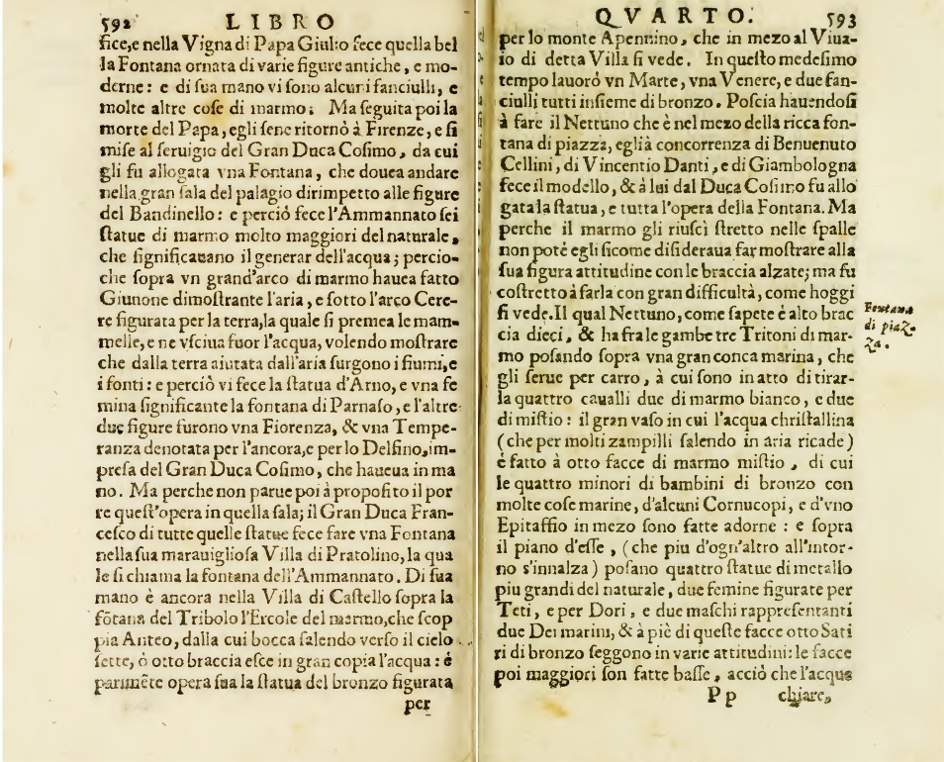 592 LIBRO
fice, e nella Vigna di Papa Giulio fece quella bel
la Fontana ornata di varie figure antiche, e mo-
derne: e di ſua mano vi ſono alcuni fanciulli, e
molte altre coſe di marmo. Ma ſeguita poi la
morte del Papa, egli ſene ritornò à Firenze, e ſi
miſe al ſeruigio del Gran Duca Coſimo, da cui
gli fu allogata vna Fontana, che douea andare
nella gran ſala del palagio dirimpetto alle figure
del Bandinello: e perciò fece l'Ammannato ſei
ſtatue di marmo molto maggiori del naturale,
che ſignificauano il generar dell'acqua; percio-
che ſopra vn grand'arco di marmo hauea fatto
Giunone dimoſtrante l'aria, e ſotto l'arco Cere-
re figurata per la terra, la quale ſi premea le mam-
melle, e ne vſciua fuor l'acqua, volendo moſtrare
che dalla terra aiutata dall'aria ſurgono i fiumi, e
i fonti: e perciò vi fece la ſtatua d'Arno, e vna fe
mina ſignificante la fontana di Parnaſo, e l'altre
due figure furono vna Fiorenza, & vna Tempe-
ranza denotata per l'ancora, e per lo Delfino, im-
preſa del Gran Duca Coſimo, che haueua in ma
no. Ma perche non parue poi à propoſito il por
re queſt'opera in quella ſala; il Gran Duca Fran-
ceſco di tutte quelle ſtatue fece fare vna Fontana
nella ſua marauiglioſa Villa di Pratolino, la qua
le ſi chiama la fontana dell'Ammannato. Di ſua
mano è ancora nella Villa di Caſtello ſopra la
fōtana del Tribolo l'Ercole del marmo, che ſcop
pia Anteo, dalla cui bocca ſalendo verſo il cielo
ſette, ò otto braccia eſce in gran copia l'acqua: é
parimēte opera ſua la ſtatua del bronzo figurata
per
QVARTO. 593
per lo monte Apennino, che in mezo al Viua-
io di detta Villa ſi vede. In queſto medeſimo
tempo lauorò vn Marte, vna Venere, e due fan-
ciulli tutti inſieme di bronzo. Poſcia hauendoſi
à fare il Nettuno che è nel mezo della ricca fon-
tana di piazza, egli à concorrenza di Benuenuto
Cellini, di Vincentio Danti, e di Giambologna
fece il modello, & à lui dal Duca Coſimo fu allo
gata la ſtatua, e tutta l'opera della Fontana. Ma
perche il marmo gli riuſcì ſtretto nelle ſpalle
non poté egli ſicome diſideraua far moſtrare alla
ſua figura attitudine con le braccia alzate; ma fu
coſtretto à farla con gran difficultà, come hoggi
ſi vede. Il qual Nettuno, come ſapete è alto brac
cia dieci, & ha fra le gambe tre Tritoni di mar-
mo poſando ſopra vna gran conca marina, che
gli ſerue per carro, à cui ſono in atto di tirar-
la quattro caualli due di marmo bianco, e due
di miſtio: il gran vaſo in cui l'acqua chriſtallina
(che per molti zampilli ſalendo in aria ricade)
é fatto à otto facce di marmo miſtio, di cui
le quattro minori di bambini di bronzo con
molte coſe marine, d'alcuni Cornucopi, e d'vno
Epitaffio in mezo ſono fatte adorne: e ſopra
il piano d'eſſe, (che piu d'ogn'altro all'intor-
no s'innalza) poſano quattro ſtatue di metallo
piu grandi del naturale, due femine figurate per
Teti, e per Dori, e due maſchi rappreſentanti
due Dei marini, & à piè di queſte facce otto Sati
ri di bronzo ſeggono in varie attitudini: le facce
poi maggiori ſon fatte baſſe, acciò che l'acque
P p chiare,
Fontana
di piaz-
za.